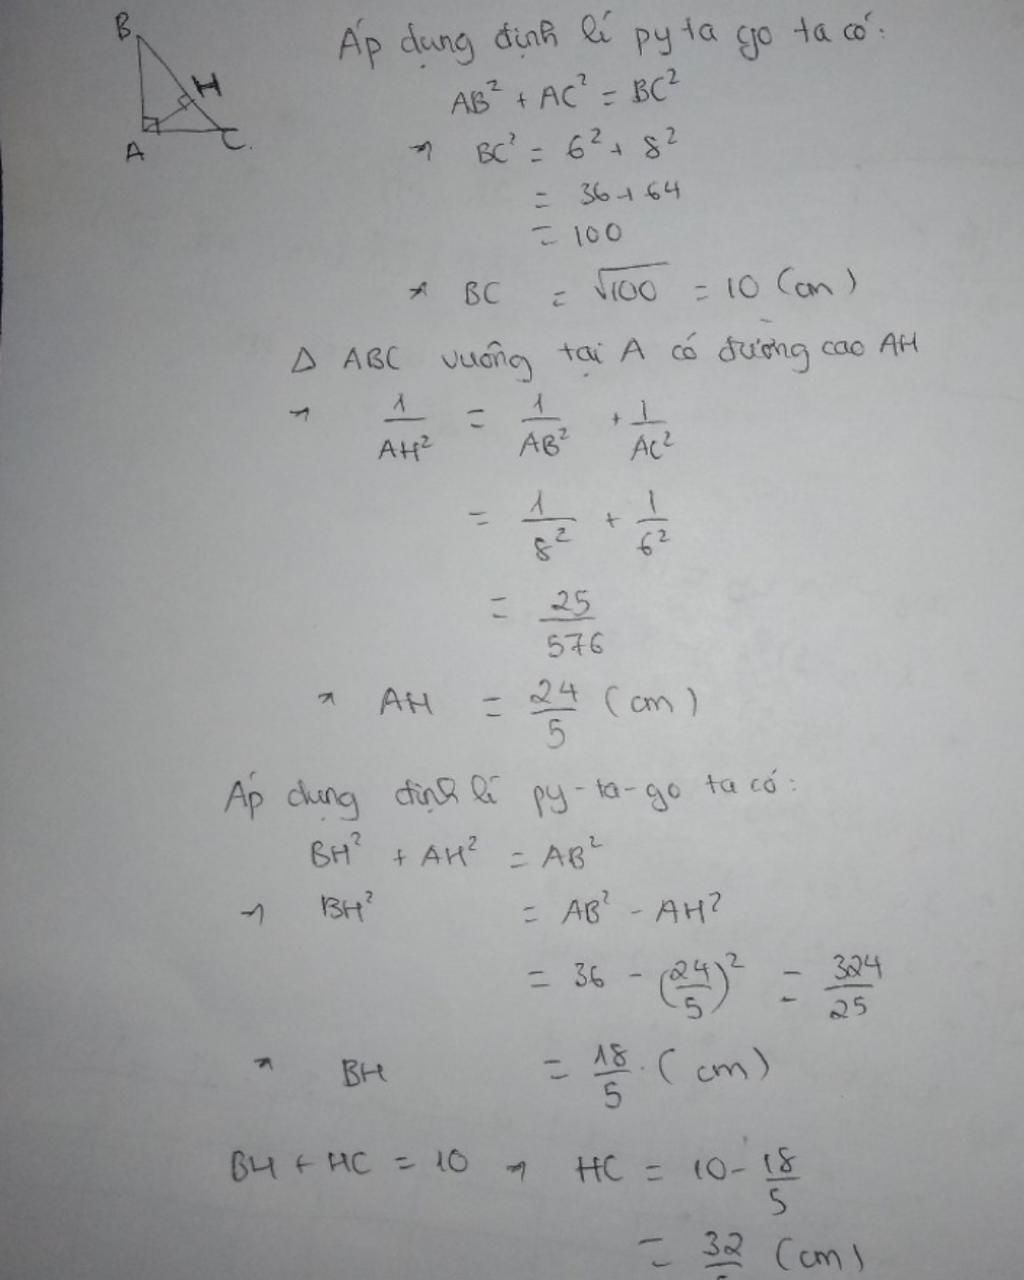 B
H
A
C.
Áp dụng định lí py ta go ta có:
AB² + AC² = BC²
→ BC² = 6² + 8²
= 36 + 64
= 100
→ BC = √100 = 10 (cm)
Δ ABC vuông tại A có đường cao AH
→ 1/AH² = 1/AB² + 1/AC²
= 1/8² + 1/6²
= 25/576
→ AH = 24/5 (cm)
Áp dụng định lí py-ta-go ta có:
BH² + AH² = AB²
→ BH² = AB² - AH²
= 36 - (24/5)² = 324/25
→ BH = 18/5 (cm)
BH + HC = 10 → HC = 10 - 18/5
= 32/5 (cm)